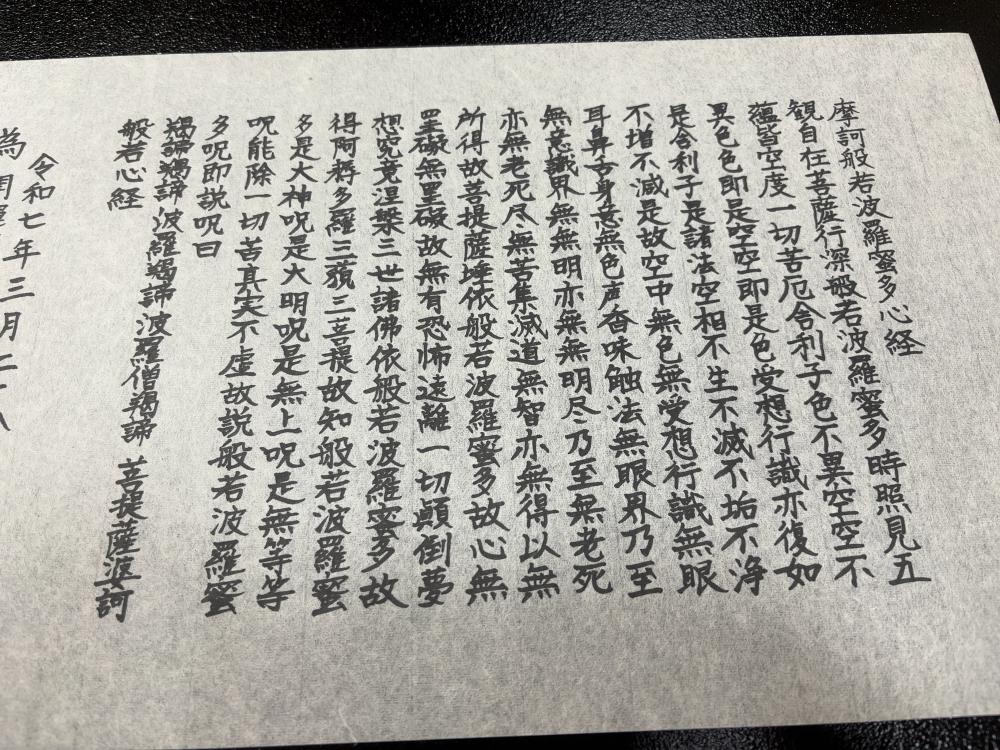 摩訶般若波羅蜜多心経
観自在菩薩行深般若波羅蜜多時照見五
蘊皆空度一切苦厄舎利子色不異空空不
異色色即是空空即是色受想行識亦復如
是舎利子是諸法空相不生不滅不垢不浄
不増不減是故空中無色無受想行識無眼
耳鼻舌身意無色声香味触法無眼界乃至
無意識界無無明亦無無明尽乃至無老死
亦無老死尽無苦集滅道無智亦無得以無
所得故菩提薩埵依般若波羅蜜多故心無
罣礙無罣礙故無有恐怖遠離一切顛倒夢
想究竟涅槃三世諸佛依般若波羅蜜多故
得阿耨多羅三藐三菩提故知般若波羅蜜
多是大神呪是大明呪是無上呪是無等等
呪能除一切苦真実不虚故説般若波羅蜜
多呪即説呪曰
羯諦羯諦 波羅羯諦 波羅僧羯諦 菩提薩婆訶
般若心経
令和七年三月二十八
為